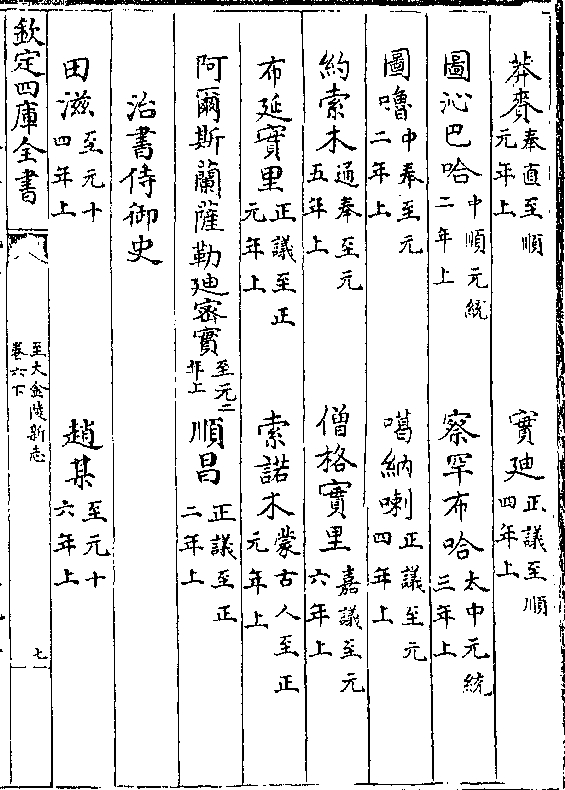 莽賚奉直至順元年上 實廸正議至順四年上
圖沁巴哈中順元統二年上 察罕布哈太中元統三年上
圖嚕中奉至元二年上 噶納喇正議至元四年上
約索木通奉至元五年上 僧格實里嘉議至元六年上
布延實里正議至正元年上 索諾木蒙古人至正元年上
阿爾斯蘭薩勒廸密實至元二年上 順昌正議至正二年上
治書侍御史
田滋至元十四年上 趙某至元十六年上
欽定四庫全書
至大金陵新志
卷六下
七